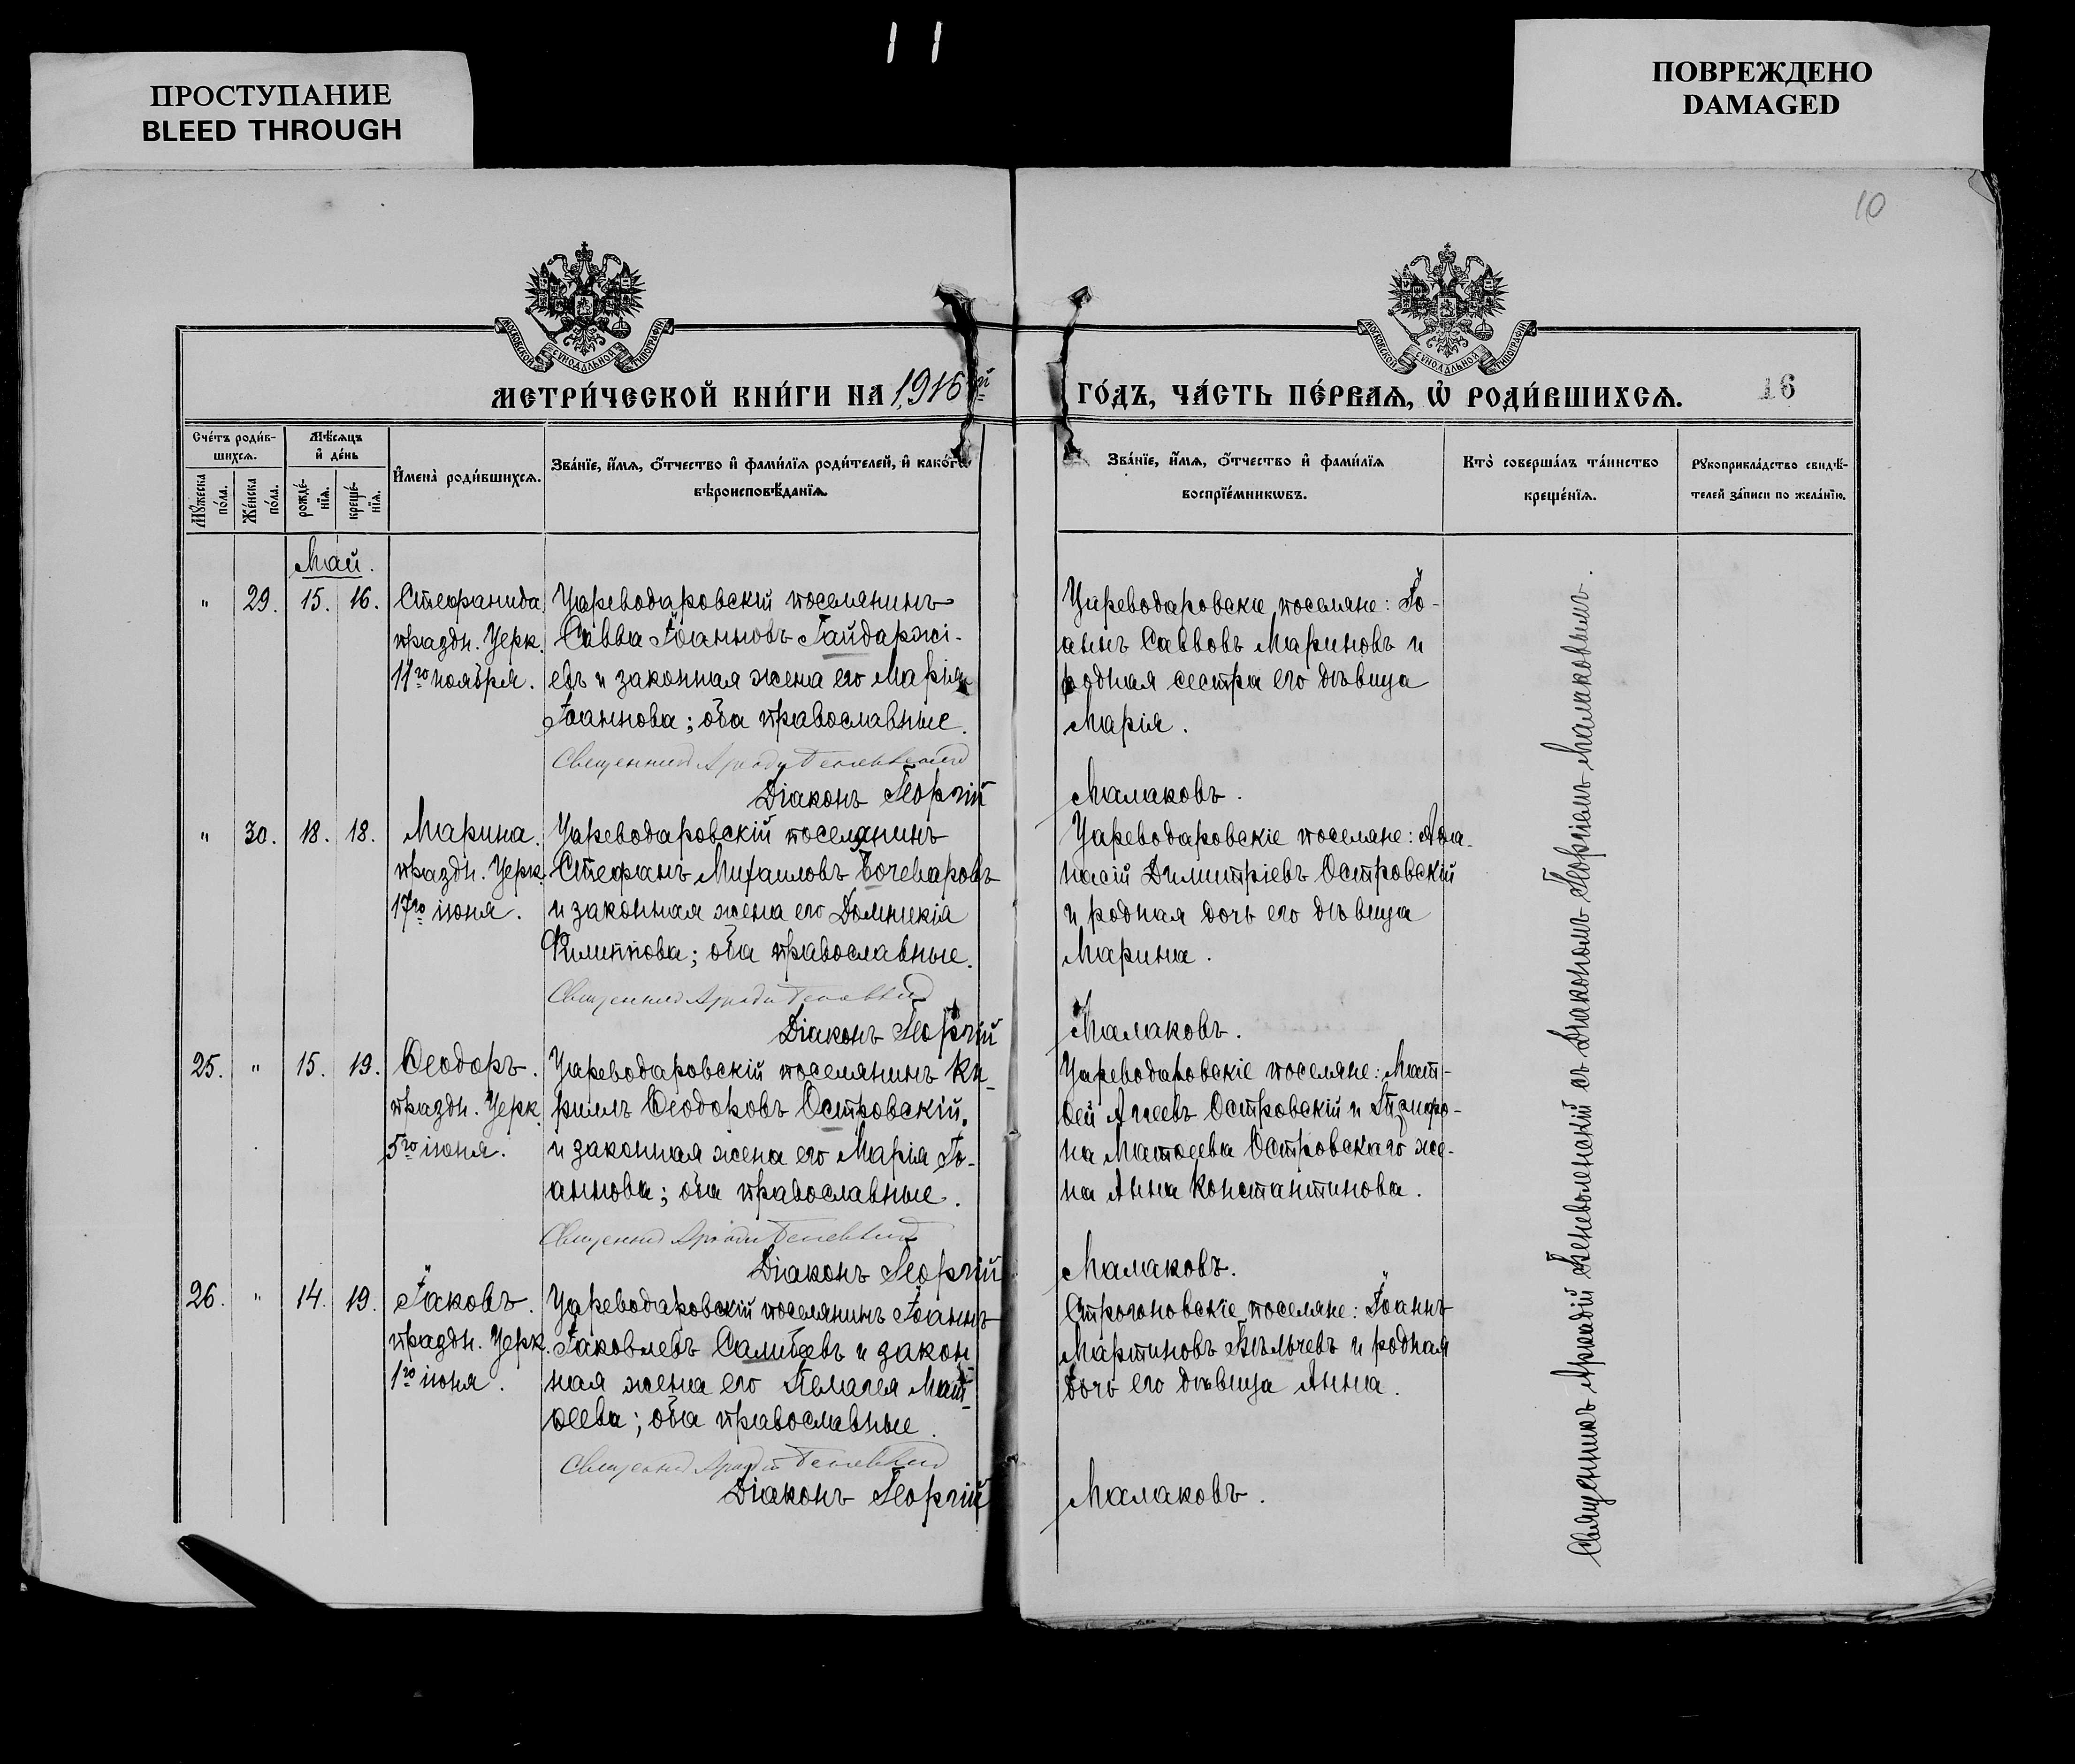 ПРОСТУПАНИЕ
BLEED THROUGH
ПОВРЕЖДЕНО
DAMAGED
11
10
МОСКОВСКОЙ СѴНОДАЛЬНОЙ ТИПОГРАФІИ
МОСКОВСКОЙ СѴНОДАЛЬНОЙ ТИПОГРАФІИ
МЕТРИ́ЧЕСКОЙ КНИ́ГИ НА 1916й
ГО́ДЪ, ЧА́СТЬ ПЕ́РВАѦ, Ѡ҆ РОДИ́ВШИХСѦ.
16
Сче́тъ роди́в-
шихсѧ.
Мꙋ́жеска по́ла.
Же́нска по́ла.
Мѣ́сѧцъ
и҆ де́нь
рожде́-
нїѧ.
креще́-
нїѧ.
И҆мена̀ роди́вшихсѧ.
Зва́нїе, и҆́мѧ, ѻ҆́тчество и҆ фами́лїѧ роди́телей, и҆ како́гѡ
вѣроисповѣ́данїѧ.
Зва́нїе, и҆́мѧ, ѻ҆́тчество и҆ фами́лїѧ
воспрїе́мникѡвъ.
Кто̀ соверша́лъ та́инство
креще́нїѧ.
Рꙋкоприкла́дство свидѣ́-
телей за́писи по жела́нїю.
Май.
" 29. 15. 16. Стефанида
праздн. Церк.
11го ноября.
Цареводаровскій поселянинъ
Савва Іоанновъ Гайдаржі-
евъ и законная жена его Марія
Іоаннова; оба православные.
Священникъ
Діаконъ Георгій
Цареводаровскіе поселяне: Іо-
аннъ Саввовъ Мариновъ и
родная сестра его дѣвица
Марія.
Малаковъ.
" 30. 18. 18. Марина.
праздн. Церк.
17го іюня.
Цареводаровскій поселянинъ
Стефанъ Михаиловъ Бочеваровъ
и законная жена его Домникія
Филиппова; оба православные.
Священникъ
Діаконъ Георгій
Цареводаровскіе поселяне: Аѳа-
насій Димитріевъ Островскій
и родная дочь его дѣвица
Марина.
Малаковъ.
25. " 15. 19. Ѳеодоръ.
праздн. Церк.
5го іюня.
Цареводаровскій поселянинъ Ки-
риллъ Ѳеодоровъ Островскій,
и законная жена его Марія Іо-
аннова; оба православные.
Священникъ
Діаконъ Георгій
Цареводаровскіе поселяне: Мат-
ѳей Агеевъ Островскій и
на Матѳеева Островскаго же-
на Анна Константинова.
Малаковъ.
26. " 14. 19. Іаковъ.
праздн. Церк.
1го іюня.
Цареводаровскій поселянинъ Іоаннъ
Іаковлевъ Салибевъ и закон-
ная жена его Пелагея Мат-
ѳеева; оба православные.
Священникъ
Діаконъ Георгій
Строгоновскіе поселяне: Іоаннъ
Мартиновъ Вълчевъ и родная
дочь его дѣвица Анна.
Малаковъ.
Священникъ Аркадій Беневоленскій съ Діакономъ Георгіемъ Малаковымъ.